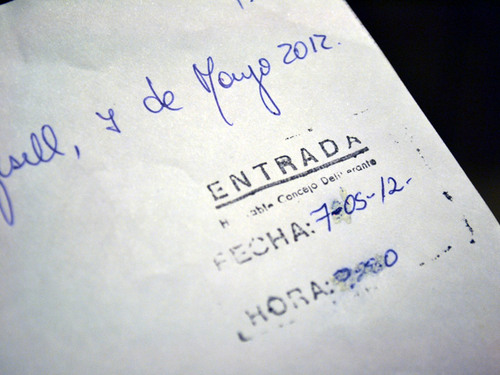 sell, 7 de Mayo 2012.
ENTRADA
Concejo Deliberante
FECHA: 7-05-12.
HORA: